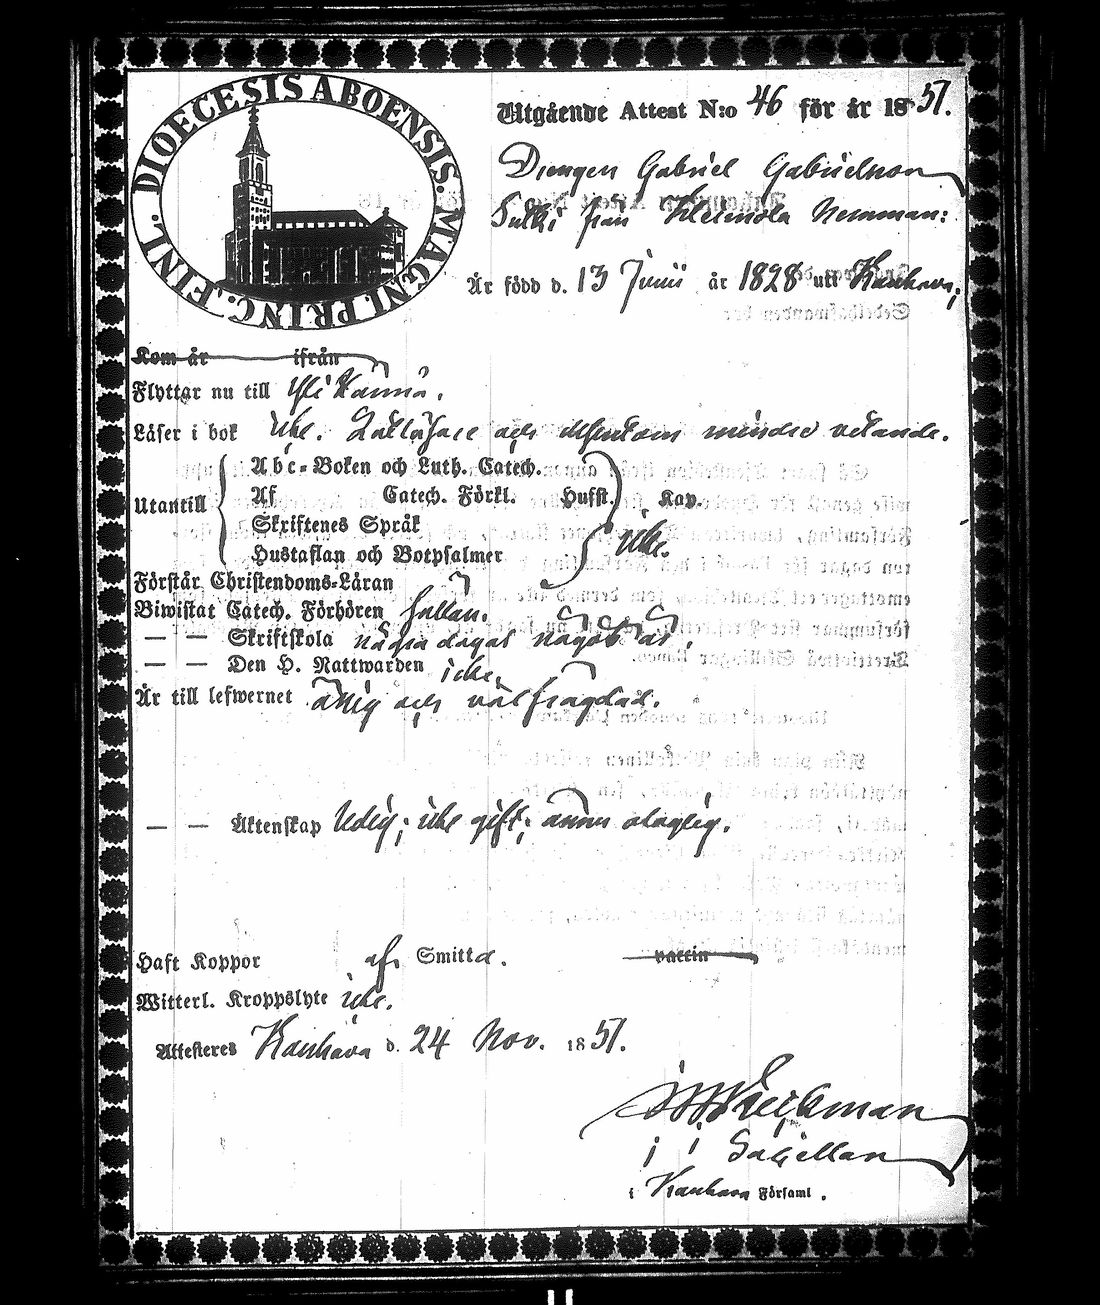 DIOECESIS ABOENSIS. MAGNI PRINC. FINL.
Utgående Attest N:o 46 för år 1851.
Drengen Gabriel Gabrielsson
Sulki från Hermola Nemman:
Är född d. 13 Junii år 1828 uti Kauhava;
Kom år ifrån
Flyttar nu till Yli Kannu.
Läser i bok icke. och dessutom mindre vetande.
Utantill
Abc-Boken och Luth. Catech.
Af Catech. Förkl. Hufst. Kap.
Skriftenes Språk
Hustaflan och Botpsalmer
icke.
Förstår Christendoms-Läran
Biwistat Catech. Förhören sällan.
— — Skriftskola några dagar något år,
— — Den H. Nattwarden icke,
Är till lefwernet ärlig och välfrägdad.
— — Äktenskap ledig; icke gift; ännu olaglig.
Haft Koppor af Smitta. vaccin
Witterl. Kroppslyte icke.
Attesteres Kauhava d. 24 Nov. 1851.
Sacellan
i Kauhava Församl.